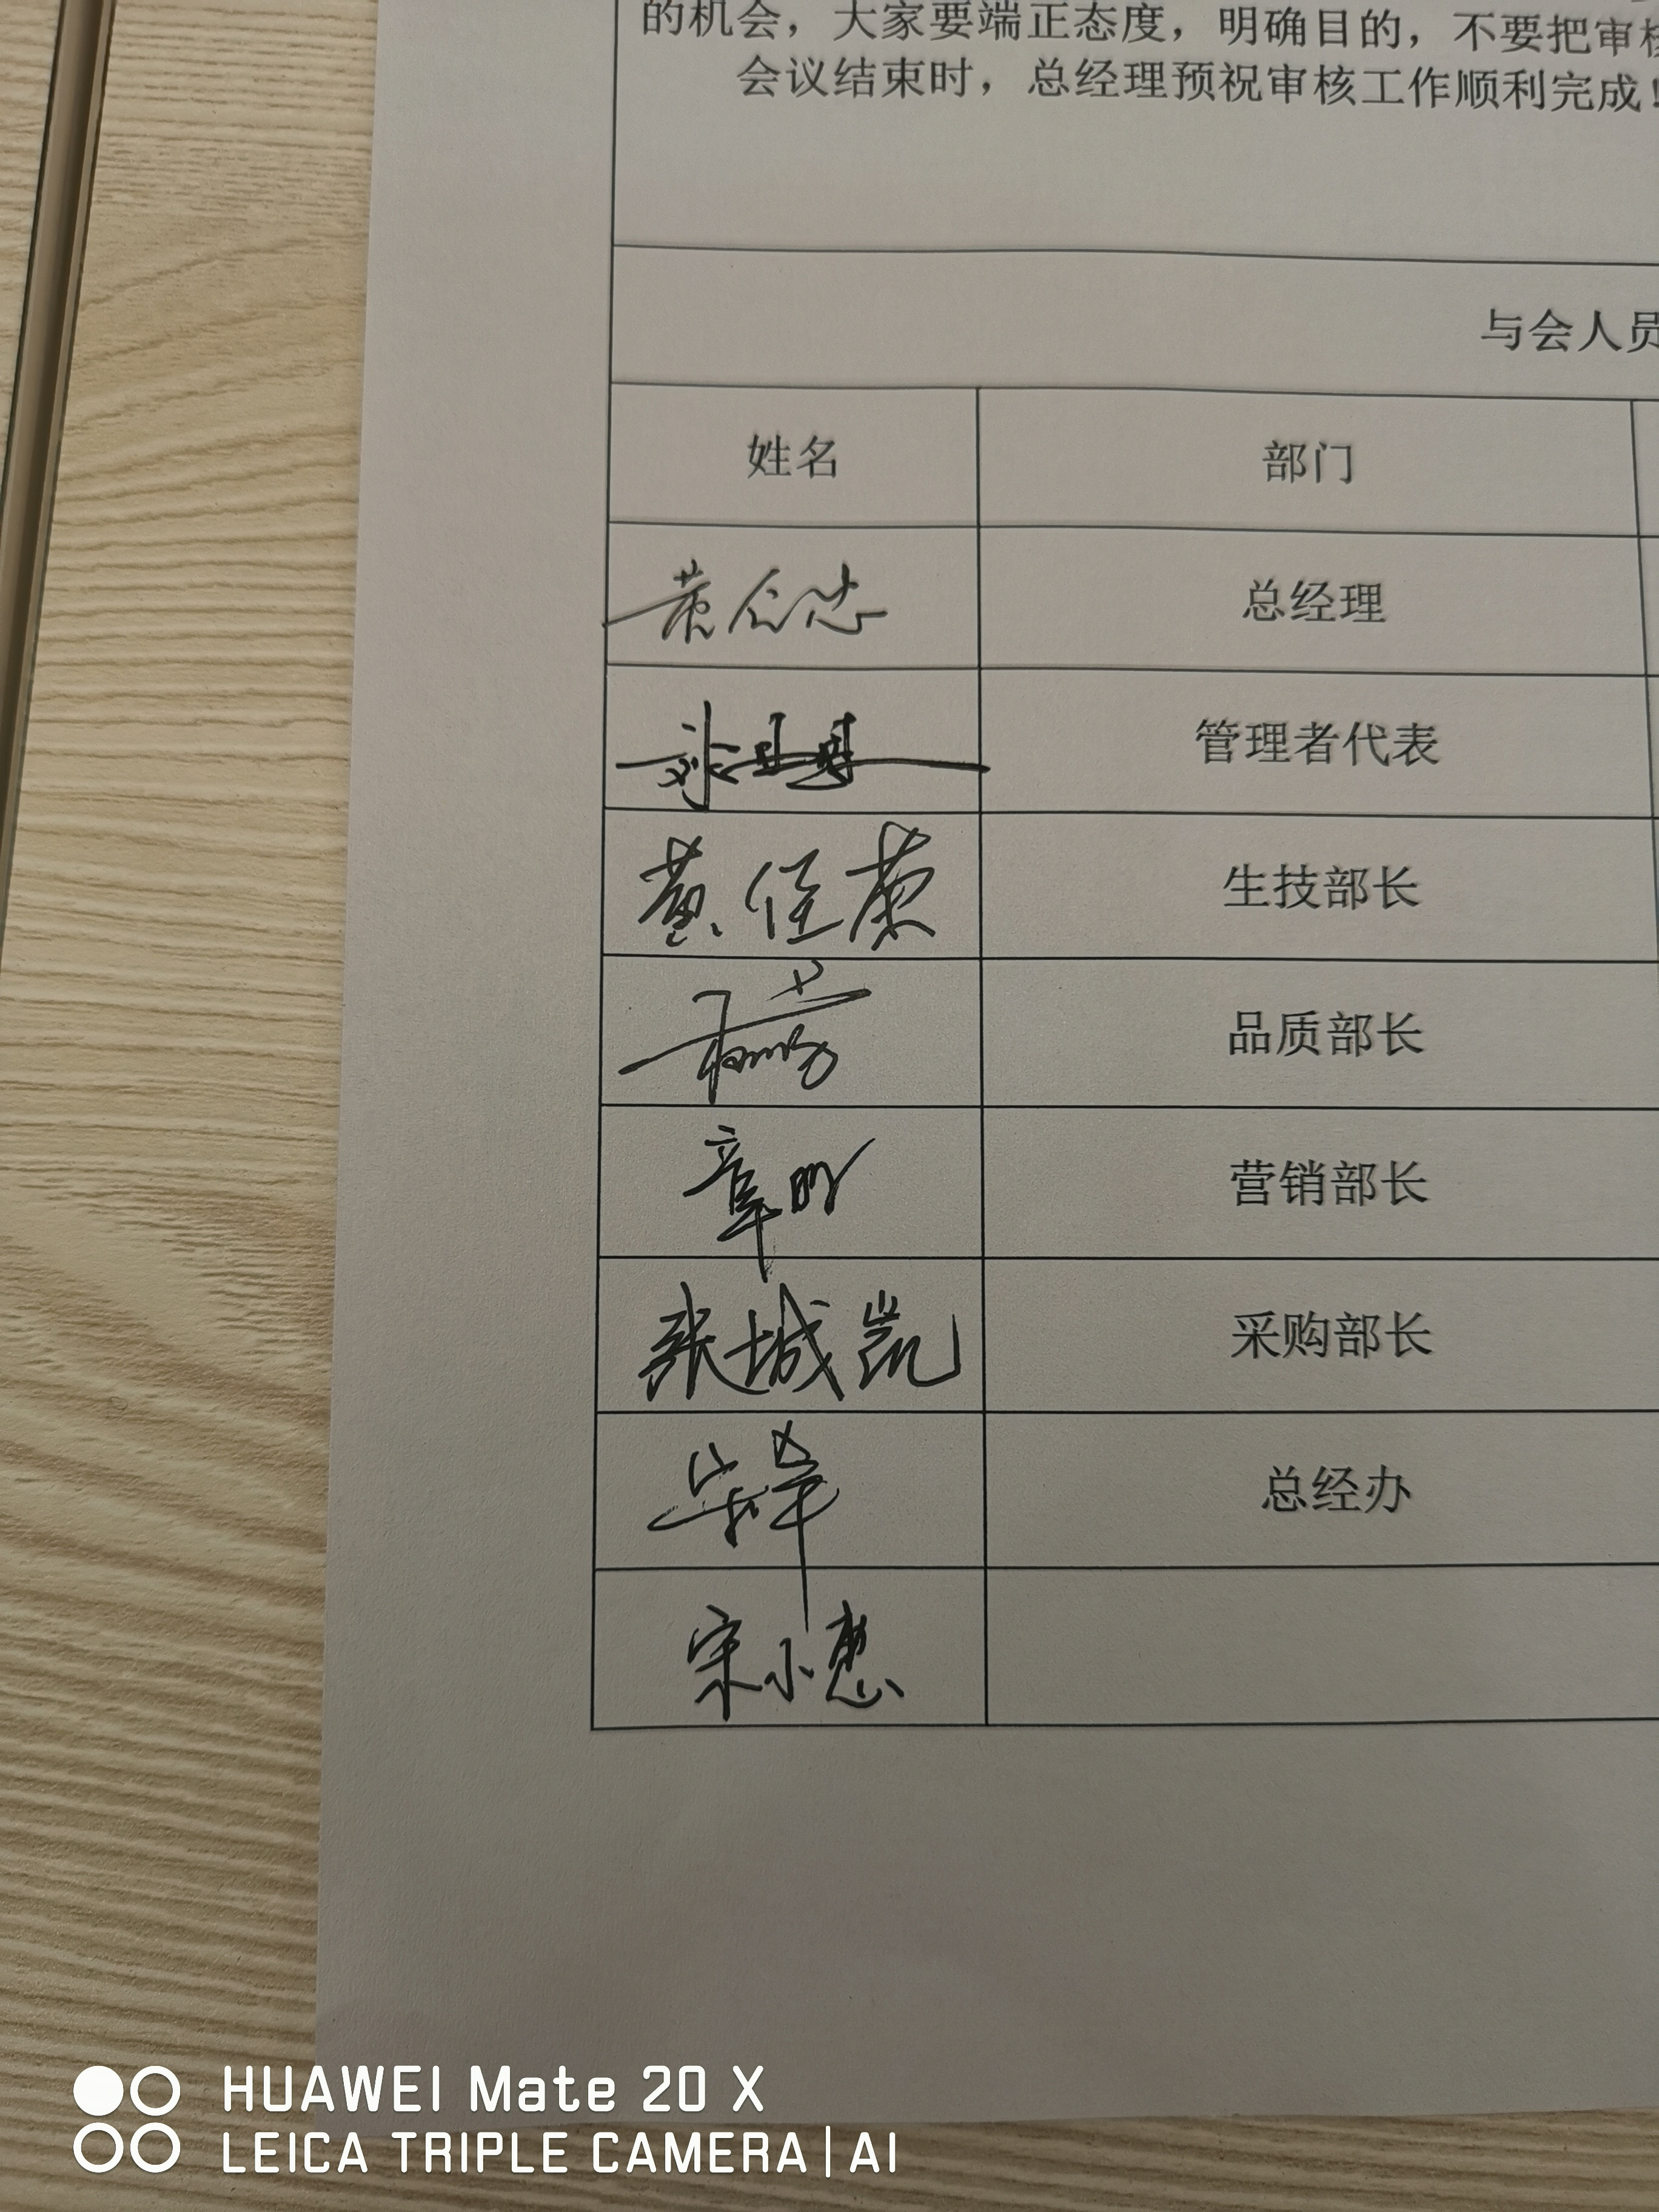 的机会，大家要端正态度，明确目的，不要把审核
会议结束时，总经理预祝审核工作顺利完成！
与会人员
姓名 部门
总经理
管理者代表
黄佳荣 生技部长
品质部长
章明 营销部长
张城凯 采购部长
总经办
宋小惠
HUAWEI Mate 20 X
LEICA TRIPLE CAMERA | AI